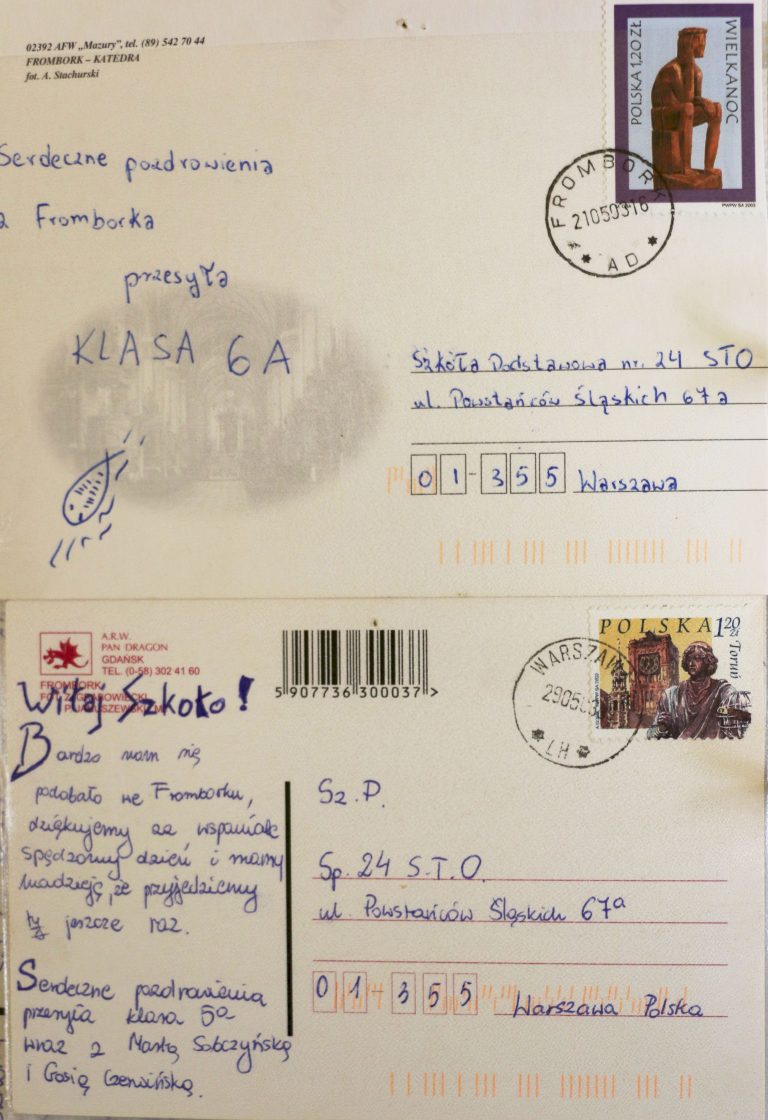 02392 AFW „Mazury”, tel. (89) 542 70 44
FROMBORK – KATEDRA
fot. A. Stachurski
POLSKA 1,20 ZŁ
WIELKANOC
PWPW SA 2003
FROMBORK
21050316
AD
Serdeczne pozdrowienia
z Fromborka
przesyła
KLASA 6A
Szkoła Podstawowa nr. 24 STO
ul. Powstańców Śląskich 67a
01-355 Warszawa
A.R.W.
PAN DRAGON
GDAŃSK
TEL. (0-58) 302 41 60
FROMBORK
5 907736 300037 >
POLSKA 1,20 zł
Toruń
WARSZAW
290503
LH
Witaj szkoło!
Bardzo nam się
podobało we Fromborku,
dziękujemy za wspaniale
spędzony dzień i mamy
nadzieję, że przyjedziemy
tu jeszcze raz.
Serdeczne pozdrowienia
przesyła klasa 5a
wraz z Martą Sobczyńską
i Gosią Czerwińską.
Sz.P.
Sp. 24 S.T.O.
ul. Powstańców Śląskich 67a
01-355 Warszawa Polska